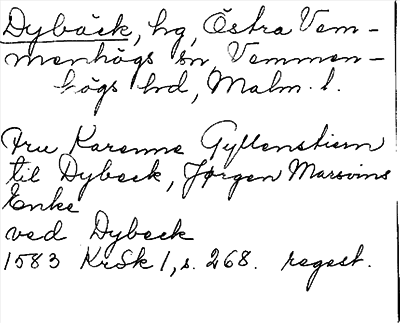 Dybäck, hg, Östra Vem-
menhögs sn, Vemmen-
högs hd, Malm. l.
Fru Karenne Gyllenstiern
til Dybeck, Jørgen Marsvins
Enke
ved Dybeck
1583 KrSk 1, s. 268. regest.